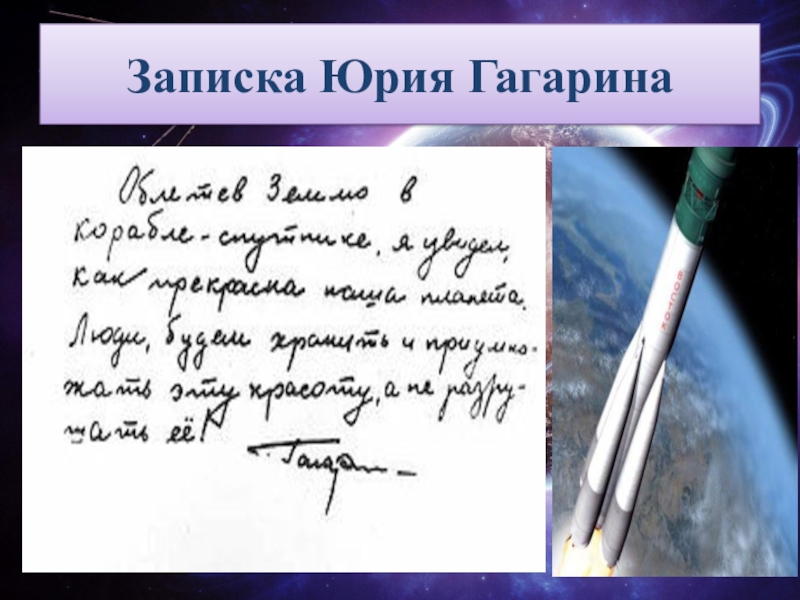 Записка Юрия Гагарина
Облетев Землю в
корабле-спутнике, я увидел,
как прекрасна наша планета.
Люди, будем хранить и приумно-
жать эту красоту, а не разру-
шать её!
Гагарин
ВОСТОК